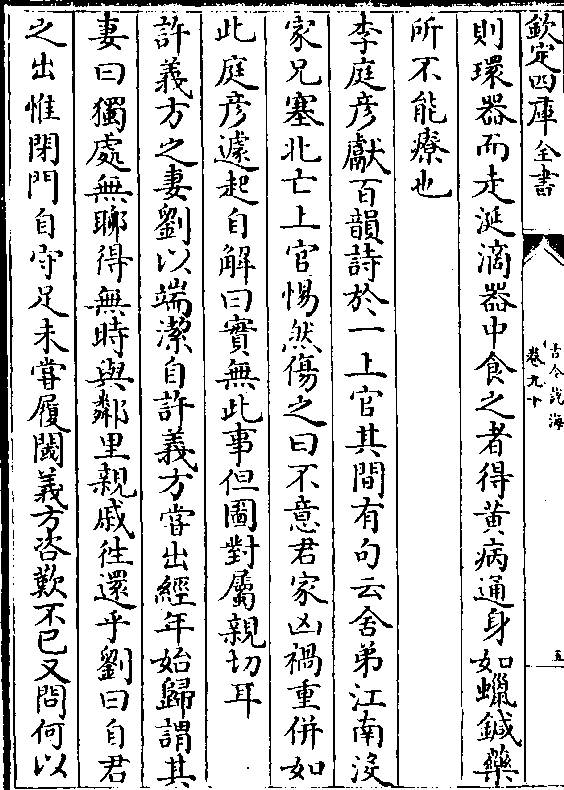 欽定四庫全書
古今說海
卷九十
五
則環器而走涎滴器中食之者得黃病通身如蠟鍼藥
所不能療也
李庭彥獻百韻詩於一上官其間有句云舍弟江南沒
家兄塞北亡上官惕然傷之曰不意君家凶禍重併如
此庭彥遽起自解曰實無此事但圖對屬親切耳
許義方之妻劉以端潔自許義方嘗出經年始歸謂其
妻曰獨處無聊得無時與鄰里親戚徃還乎劉曰自君
之出惟閉門自守足未嘗履閾義方咨歎不已又問何以